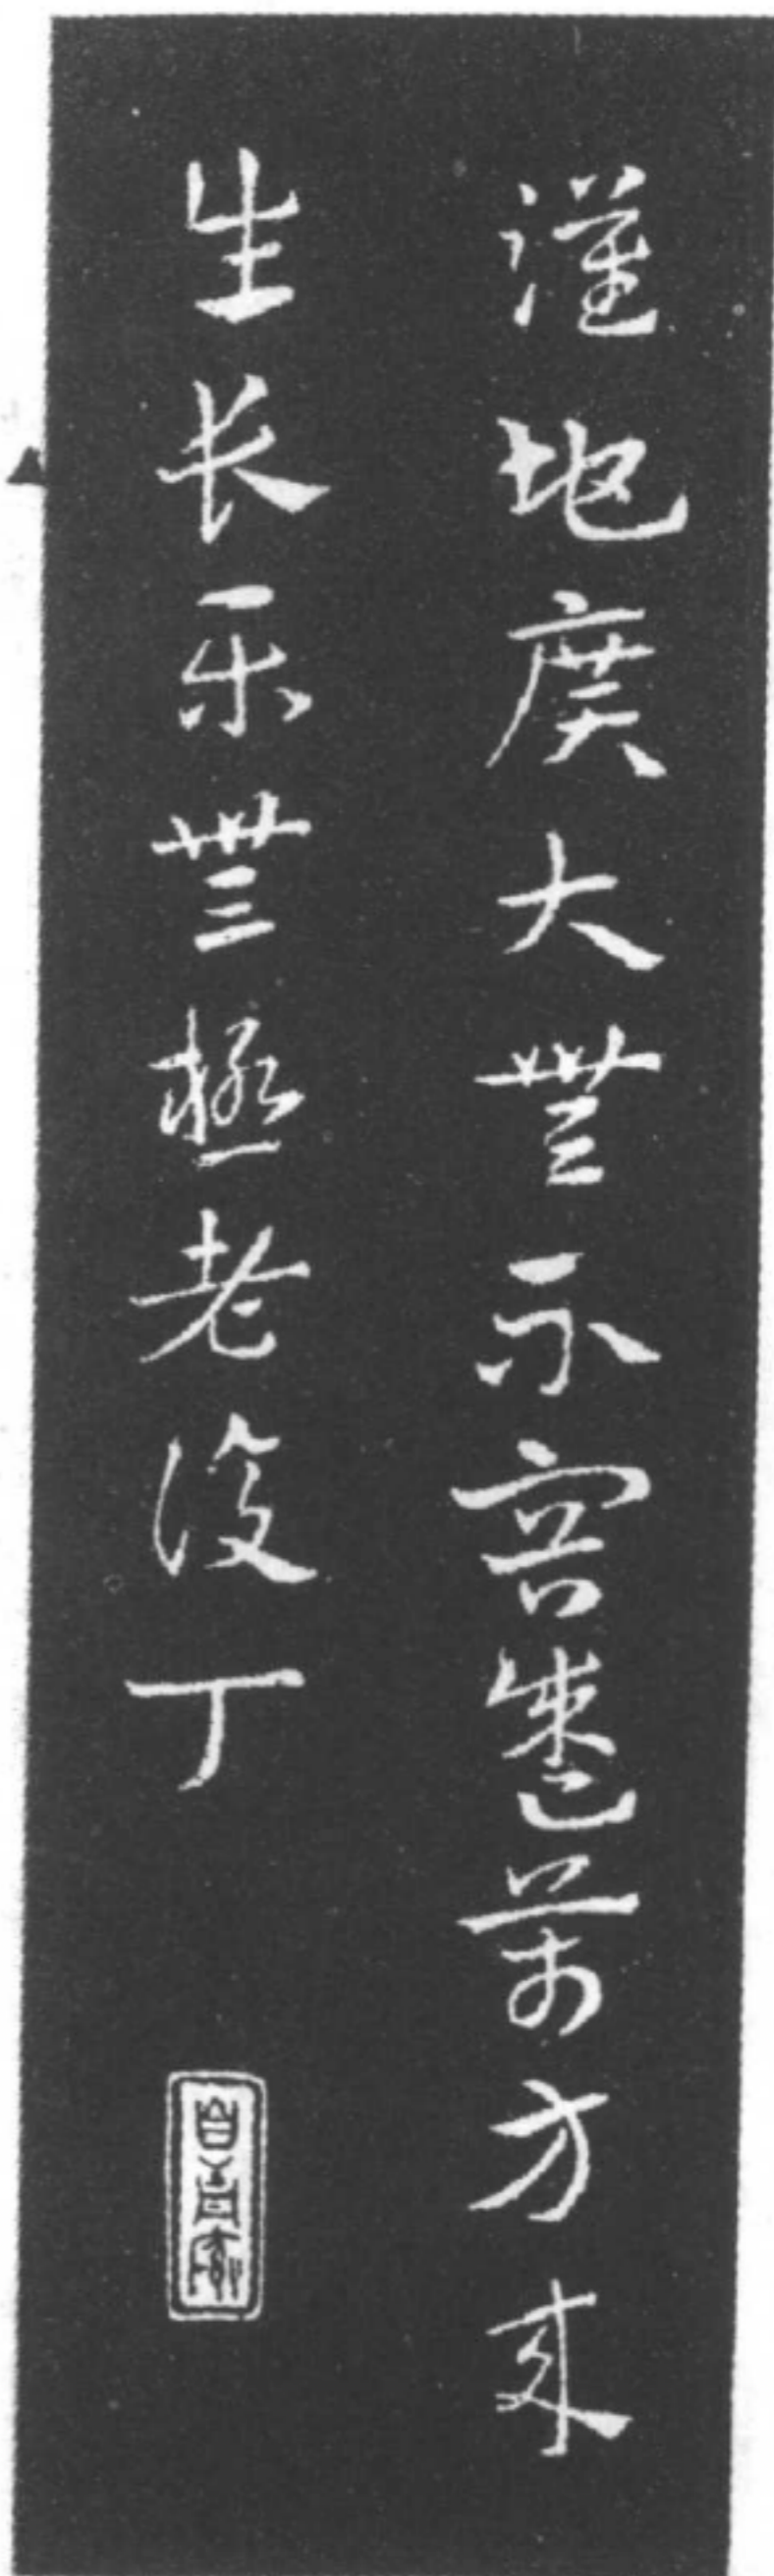 漢地廣大無不容盛萬方來
生長樂無極老復丁